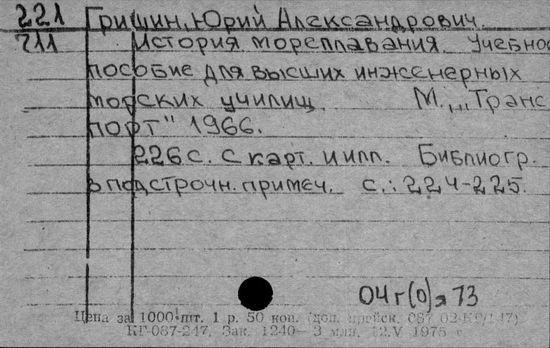 221 Гришин, Юрий Александрович.
211 История мореплавания. Учебное
пособие для высших инженерных
морских училищ. М., „Транс
порт" 1966.
226 с. с карт. и илл. Библиогр.
в подстрочн. примеч. с.: 224-225.
04г(0)я73
Цена за 1000 шт. 1 р. 50 коп. (доп. прейск. 087
КГ-087-247. Зак. 1240— 3 млн. 12.V 1975 г.